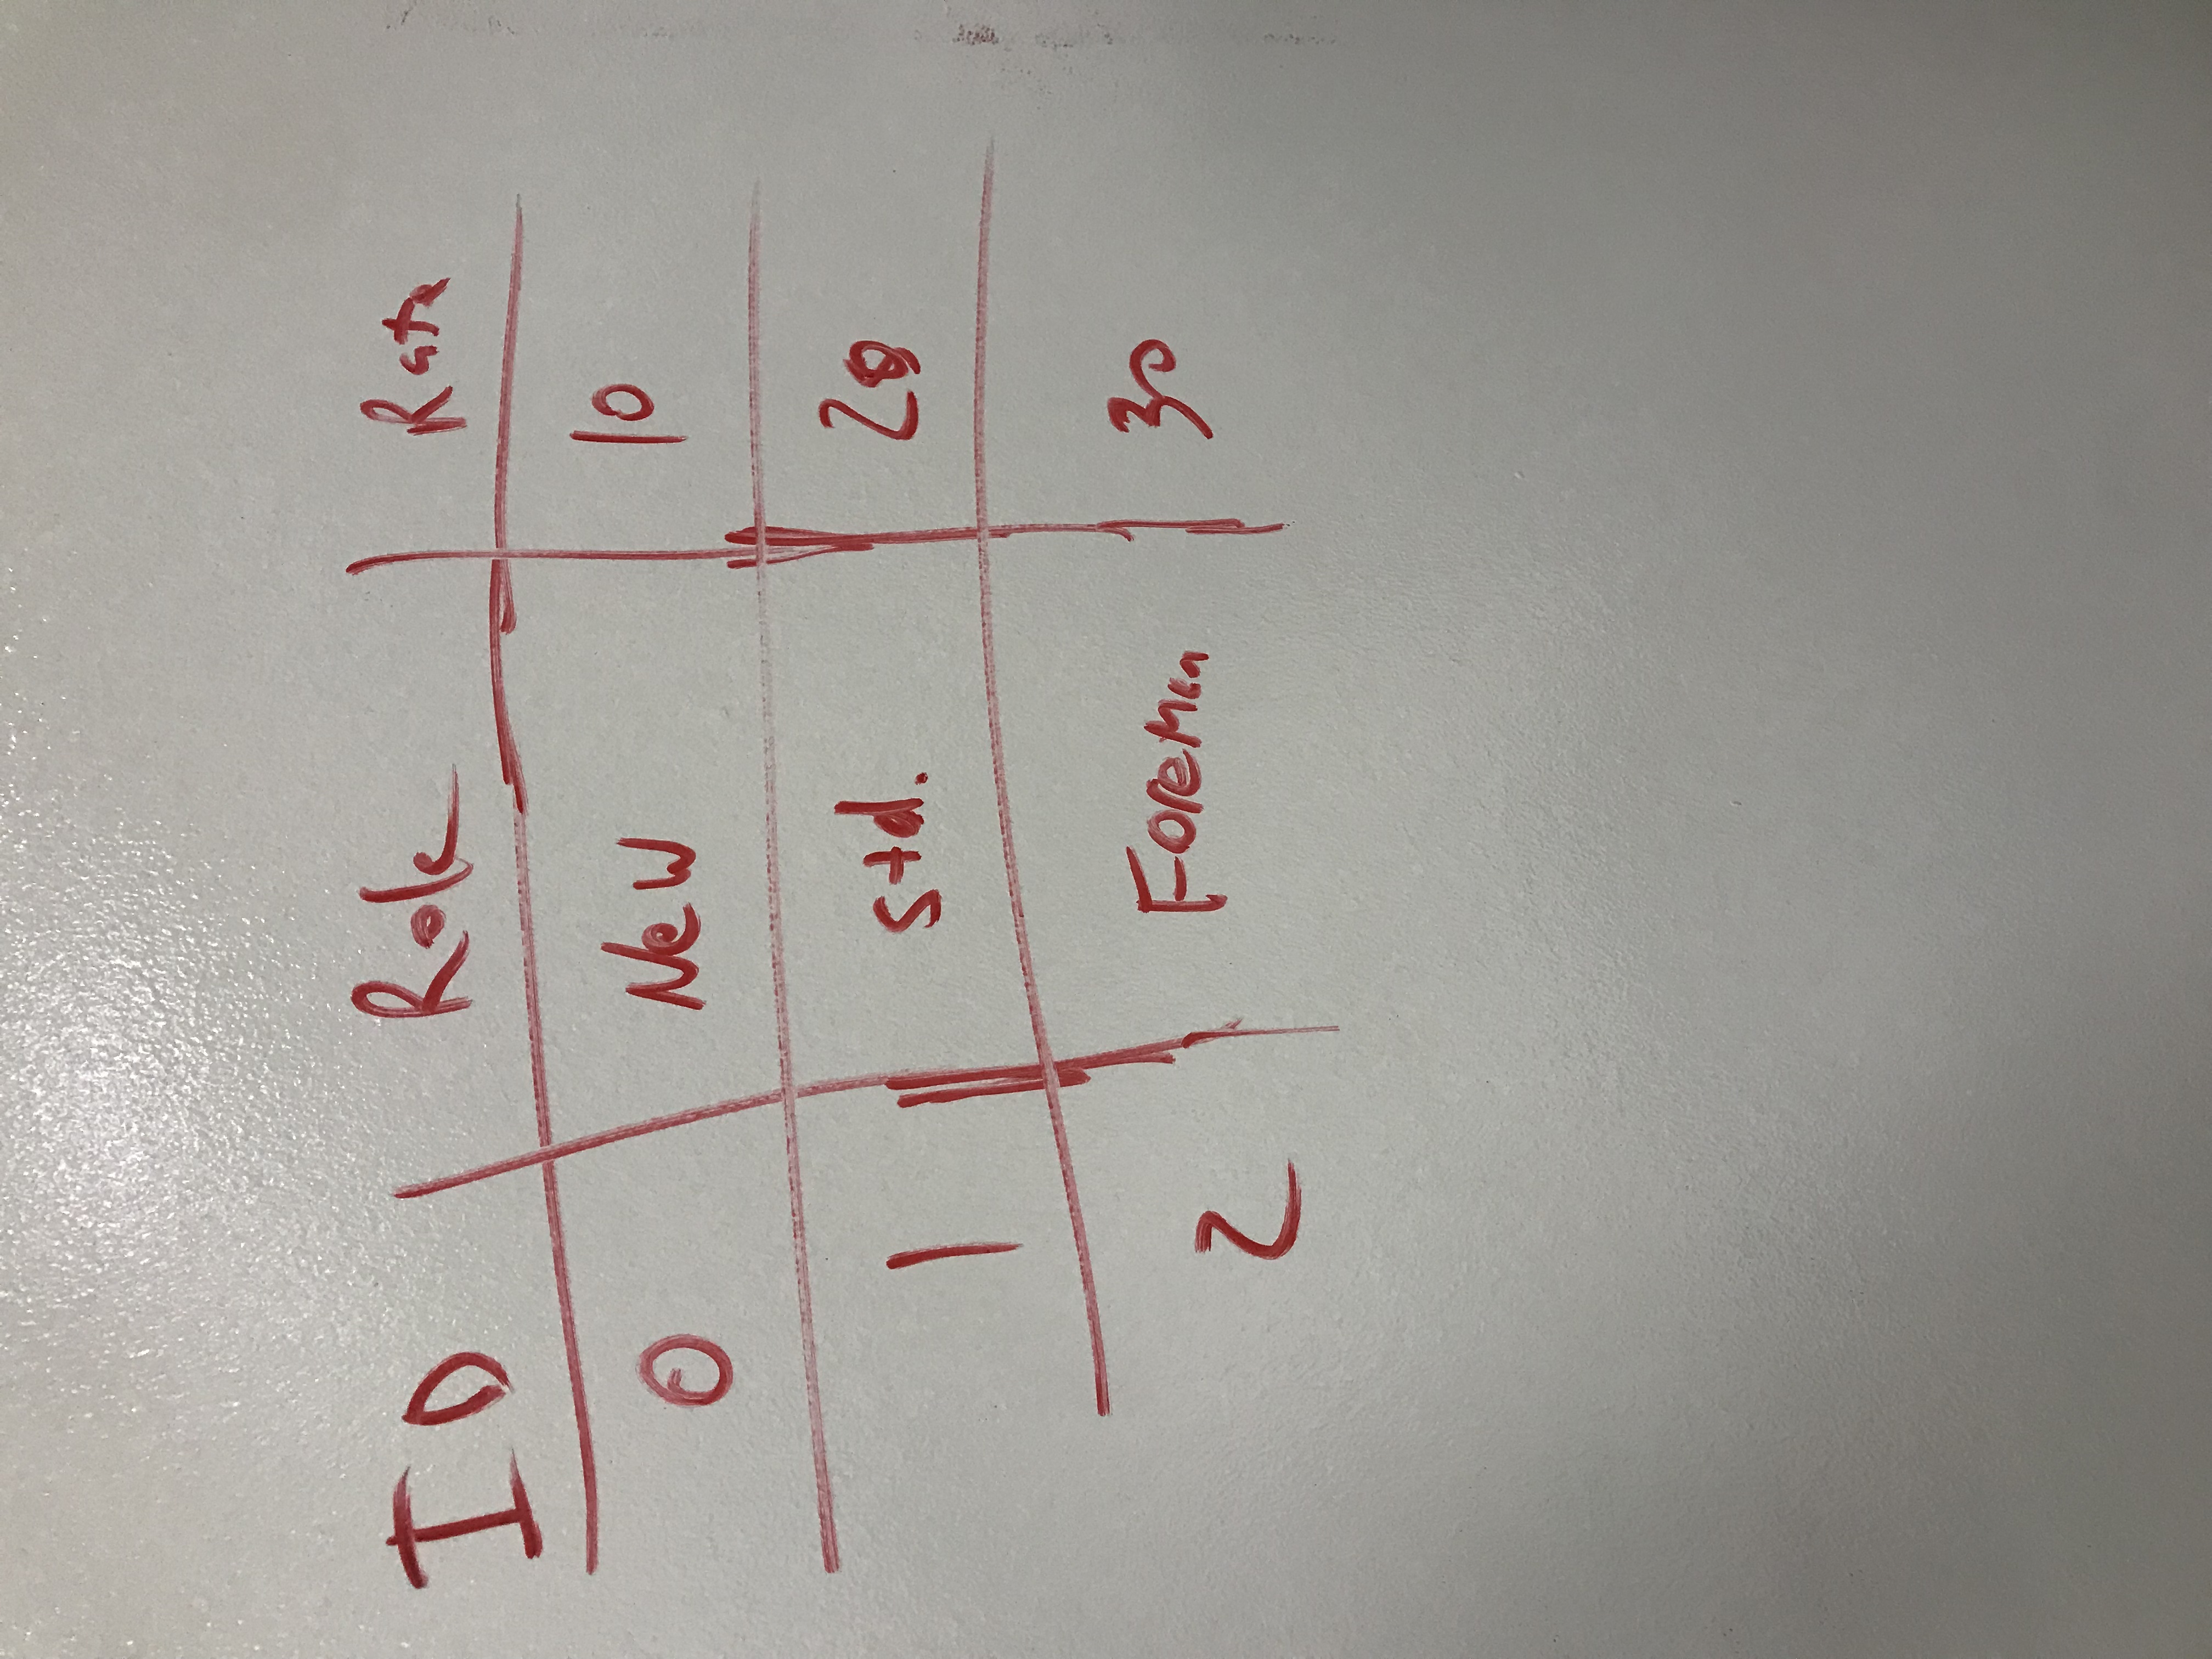 ID Role Rate
0 New 10
1 Std. 20
2 Foreman 30